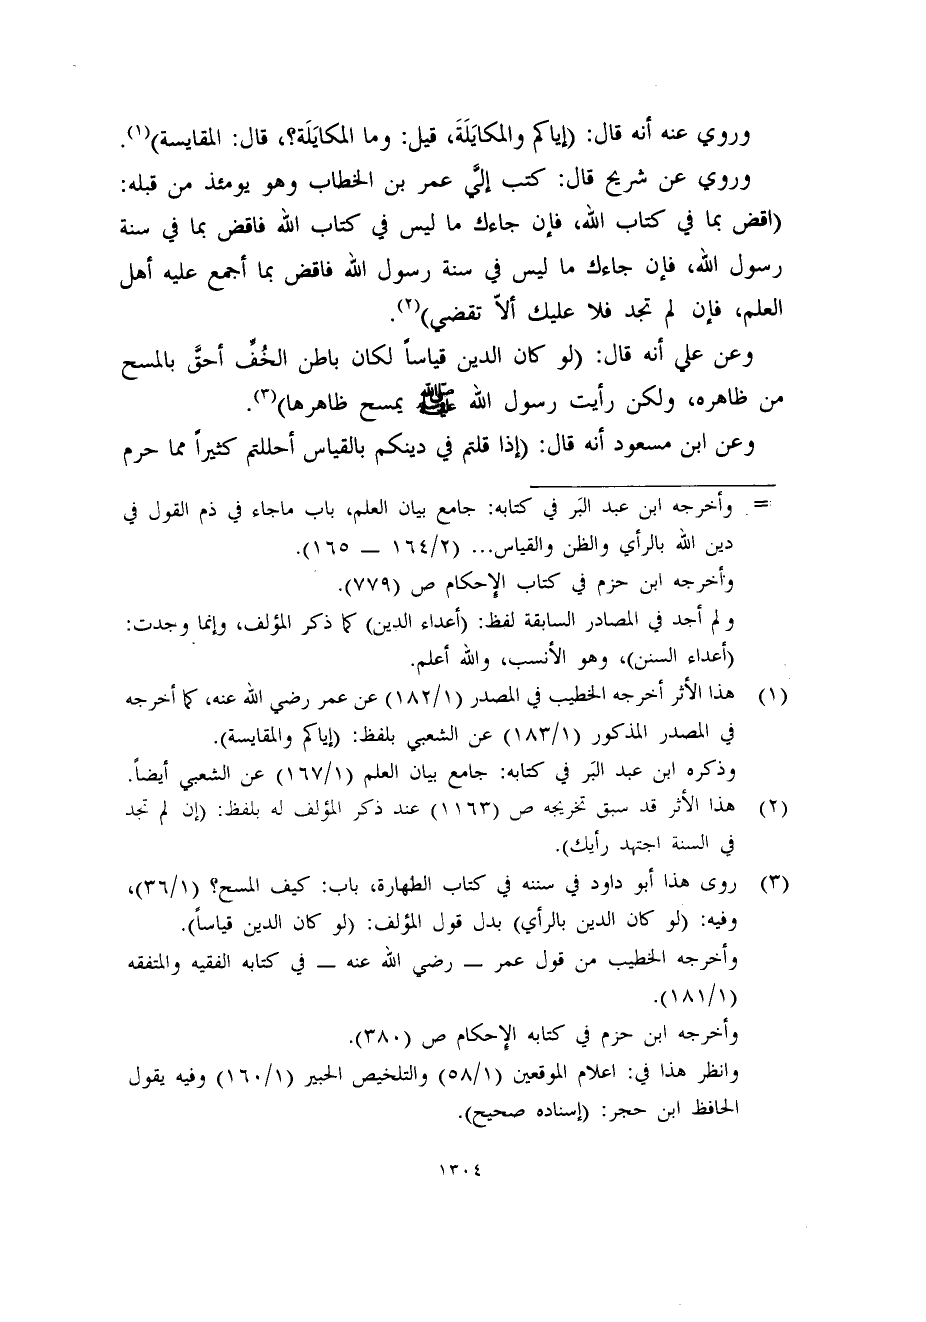 وروي عنه أنه قال: (إياكم والمكايَلَةَ، قيل: وما المكايَلَة؟، قال: المقايسة)(١).
وروي عن شريح قال: كتب إليَّ عمر بن الخطاب وهو يومئذ من قبله:
(اقض بما في كتاب الله، فإن جاءك ما ليس في كتاب الله فاقض بما في سنة
رسول الله، فإن جاءك ما ليس في سنة رسول الله فاقض بما أجمع عليه أهل
العلم، فإن لم تجد فلا عليك ألاّ تقضي)(٢).
وعن علي أنه قال: (لو كان الدين قياساً لكان باطن الخُفِّ أحقَّ بالمسح
من ظاهره، ولكن رأيت رسول الله ﷺ يمسح ظاهرها)(٣).
وعن ابن مسعود أنه قال: (إذا قلتم في دينكم بالقياس أحللتم كثيراً مما حرم
= وأخرجه ابن عبد البَر في كتابه: جامع بيان العلم، باب ماجاء في ذم القول في
دين الله بالرأي والظن والقياس... (١٦٤/٢ ــ ١٦٥).
وأخرجه ابن حزم في كتاب الإحكام ص (٧٧٩).
ولم أجد في المصادر السابقة لفظ: (أعداء الدين) كما ذكر المؤلف، وإنما وجدت:
(أعداء السنن)، وهو الأنسب، والله أعلم.
(١) هذا الأثر أخرجه الخطيب في المصدر (١٨٢/١) عن عمر رضي الله عنه، كما أخرجه
في المصدر المذكور (١٨٣/١) عن الشعبي بلفظ: (إياكم والمقايسة).
وذكره ابن عبد البَر في كتابه: جامع بيان العلم (١٦٧/١) عن الشعبي أيضاً.
(٢) هذا الأثر قد سبق تخريجه ص (١١٦٣) عند ذكر المؤلف له بلفظ: (إن لم تجد
في السنة اجتهد رأيك).
(٣) روى هذا أبو داود في سننه في كتاب الطهارة، باب: كيف المسح؟ (٣٦/١)،
وفيه: (لو كان الدين بالرأي) بدل قول المؤلف: (لو كان الدين قياساً).
وأخرجه الخطيب من قول عمر ــ رضي الله عنه ــ في كتابه الفقيه والمتفقه
(١٨١/١).
وأخرجه ابن حزم في كتابه الإحكام ص (٣٨٠).
وانظر هذا في: اعلام الموقعين (٥٨/١) والتلخيص الحبير (١٦٠/١) وفيه يقول
الحافظ ابن حجر: (إسناده صحيح).
١٣٠٤